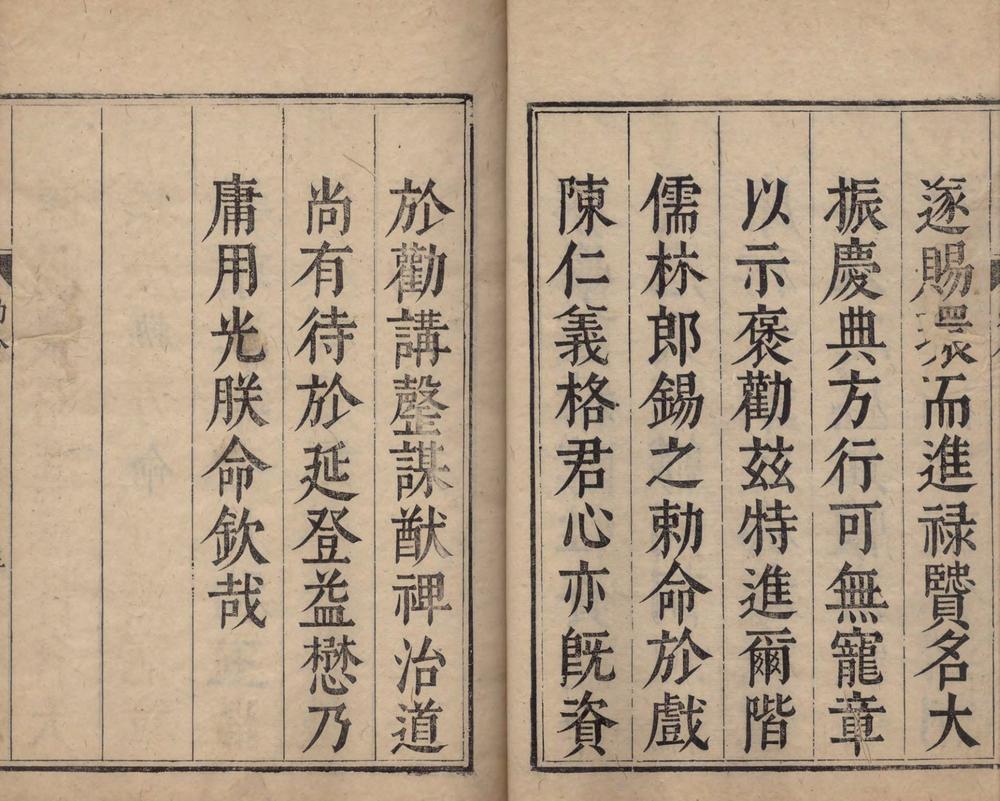 逐賜環而進禄贒名大
振慶典方行可無寵章
以示褒勸兹特進爾階
儒林郎錫之勅命於戲
陳仁義格君心亦既資
於勸講罄謀猷禆治道
尚有待於延登益懋乃
庸用光朕命欽哉